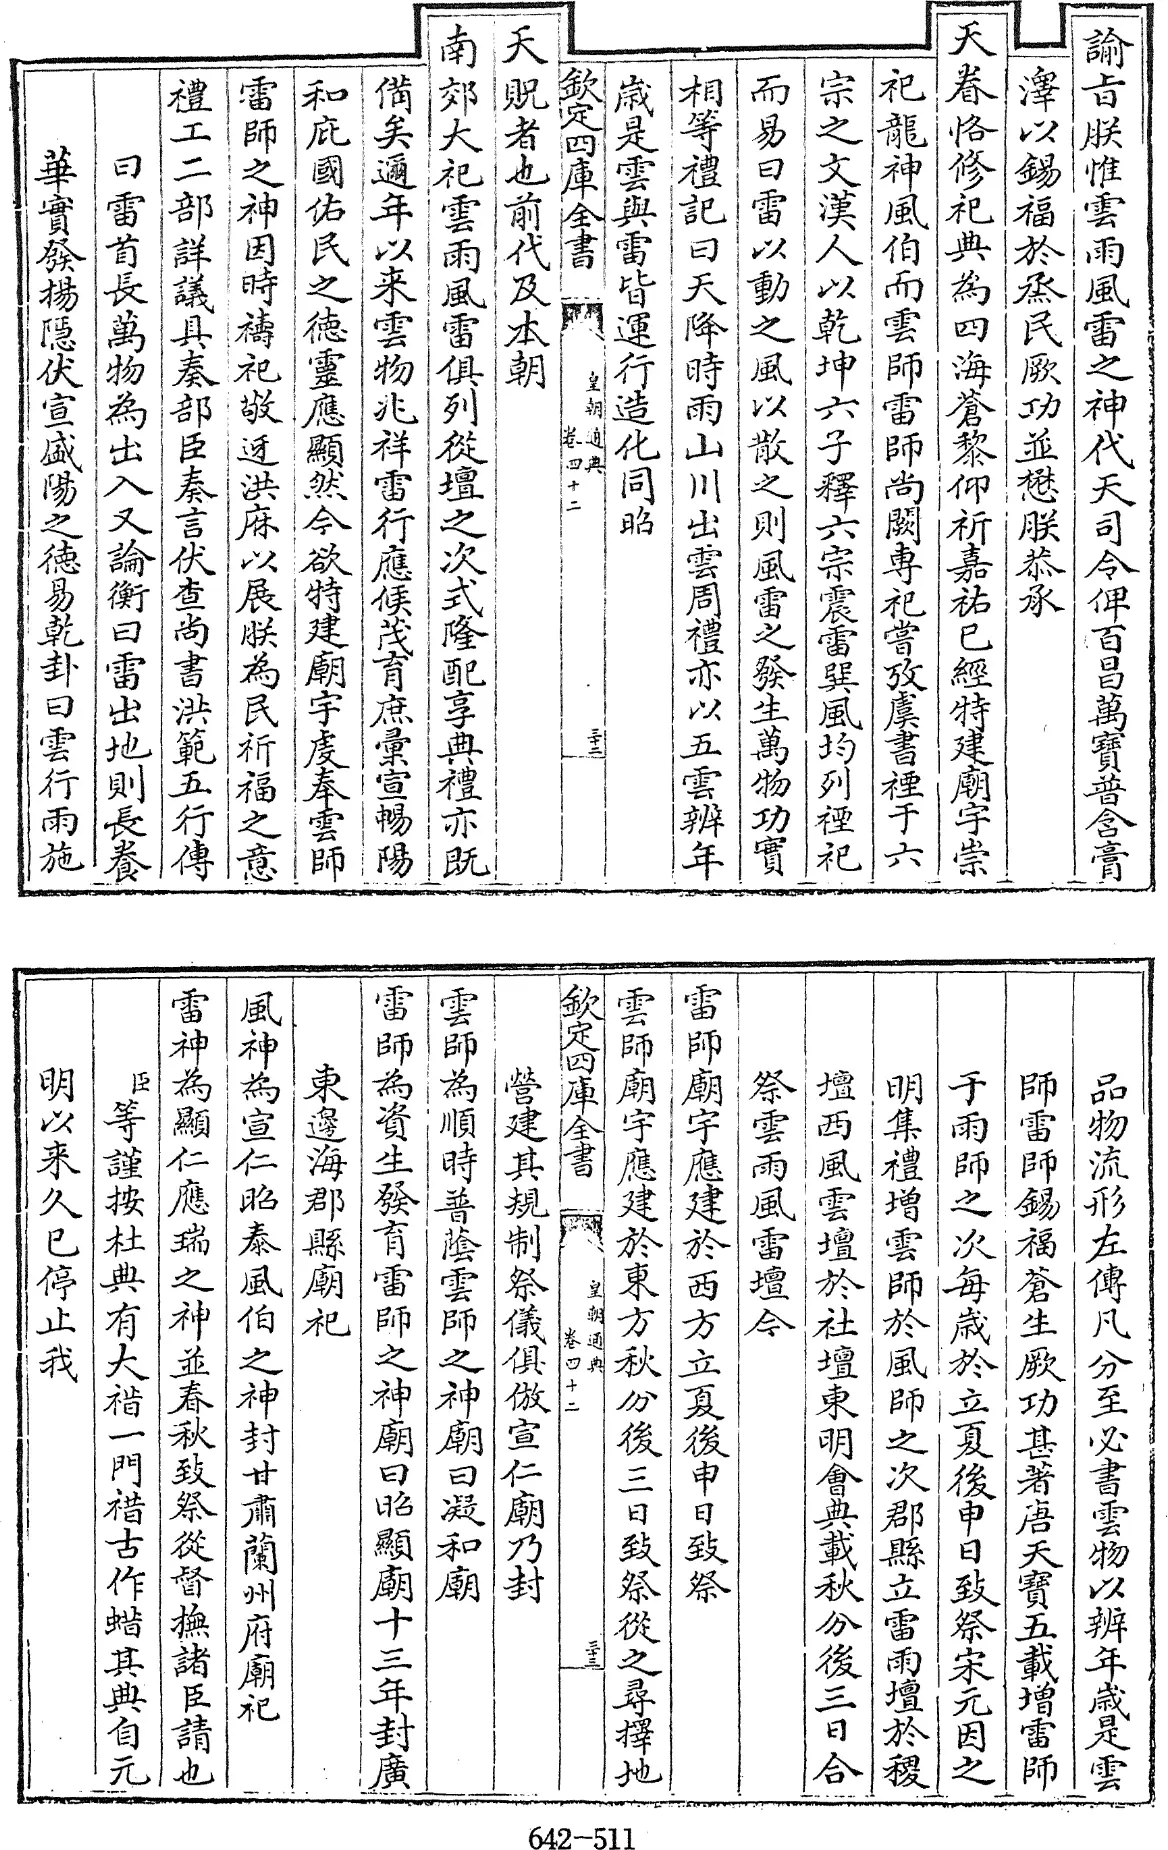 諭旨朕惟雲雨風雷之神代天司令俾百昌萬寶普含膏
澤以錫福於烝民厥功並懋朕恭承
天眷恪修祀典為四海蒼黎仰祈嘉祐已經特建廟宇崇
祀龍神風伯而雲師雷師尚闕専祀嘗攷虞書禋于六
宗之文漢人以乾坤六子釋六宗震雷巽風均列禋祀
而易曰雷以動之風以散之則風雷之發生萬物功實
相等禮記曰天降時雨山川出雲周禮亦以五雲辨年
歲是雲與雷皆運行造化同昭
欽定四庫全書
皇朝通典
卷四十二
三十三
天貺者也前代及本朝
南郊大祀雲雨風雷俱列從壇之次式隆配享典禮亦既
備矣邇年以来雲物兆祥雷行應候茂育庶彚宣暢陽
和庇國佑民之德靈應顯然今欲特建廟宇虔奉雲師
雷師之神因時禱祀敬迓洪庥以展朕為民祈福之意
禮工二部詳議具奏部臣奏言伏查尚書洪範五行傳
曰雷首長萬物為出入又論衡曰雷出地則長養
華實發揚隠伏宣盛陽之德易乾卦曰雲行雨施
品物流形左傳凡分至必書雲物以辨年歲是雲
師雷師錫福蒼生厥功甚著唐天寶五載增雷師
于雨師之次每歲於立夏後申日致祭宋元因之
明集禮增雲師於風師之次郡縣立雷雨壇於稷
壇西風雲壇於社壇東明會典載秋分後三日合
祭雲雨風雷壇今
雷師廟宇應建於西方立夏後申日致祭
雲師廟宇應建於東方秋分後三日致祭從之尋擇地
欽定四庫全書
皇朝通典
卷四十二
三十三
營建其規制祭儀俱倣宣仁廟乃封
雲師為順時普蔭雲師之神廟曰凝和廟
雷師為資生發育雷師之神廟曰昭顯廟十三年封廣
東邊海郡縣廟祀
風神為宣仁昭泰風伯之神封甘肅蘭州府廟祀
雷神為顯仁應瑞之神並春秋致祭從督撫諸臣請也
臣等謹按杜典有大䄍一門䄍古作蜡其典自元
明以来久已停止我
642-511